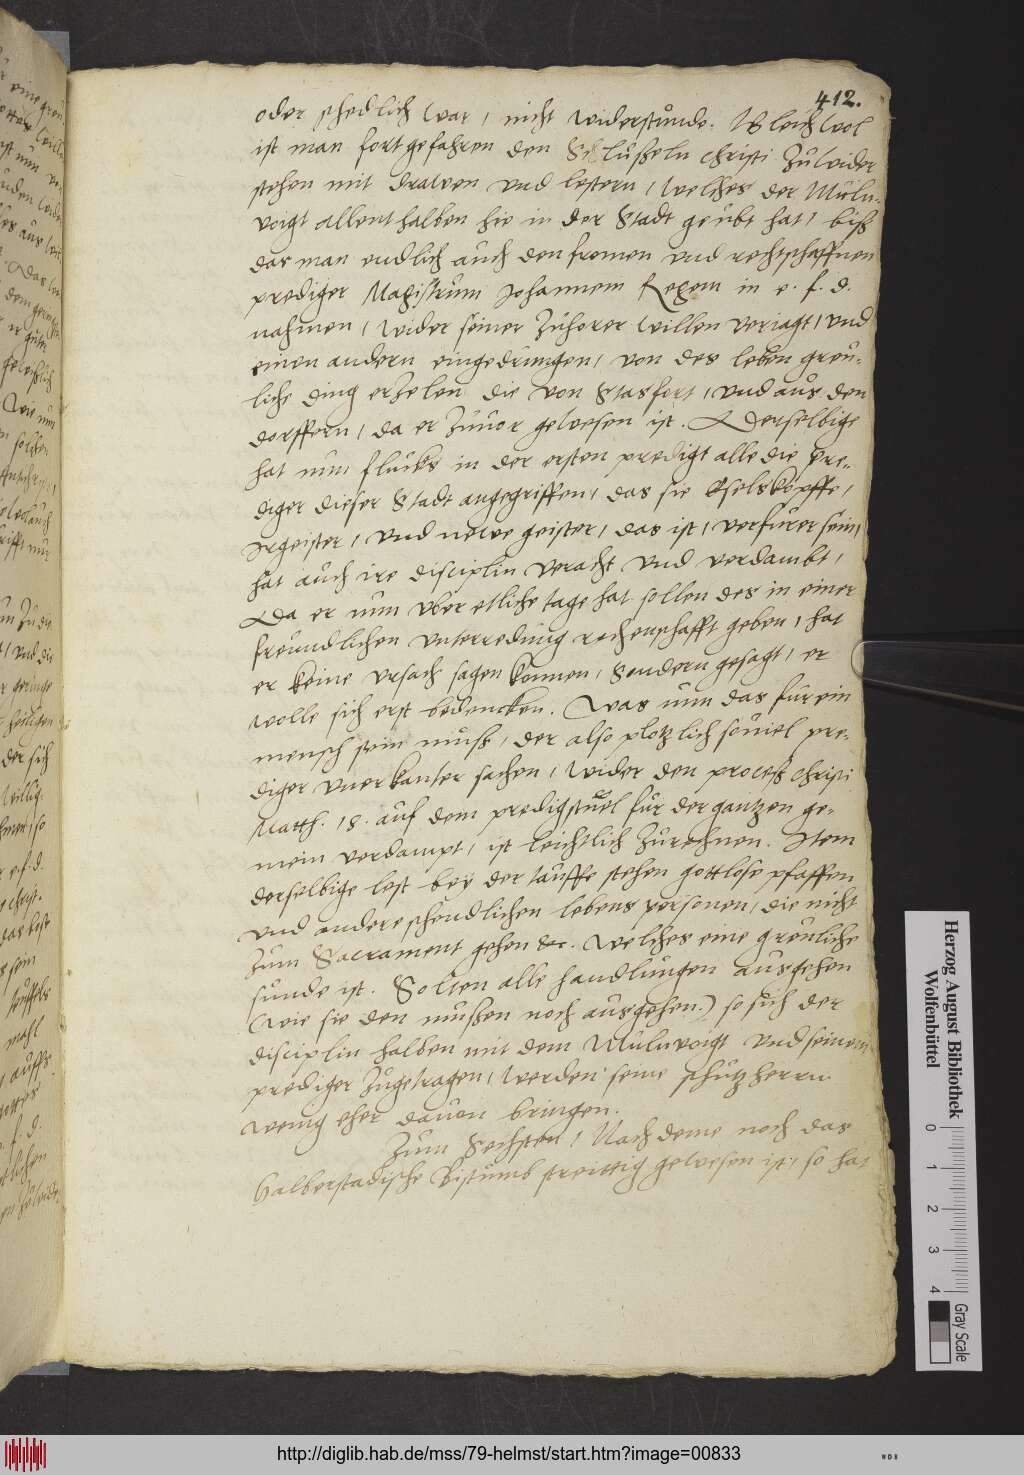 412.
oder schedlich war, nicht widerstunde. Gleichwol
ist man fortgefahren den Schlußeln Christi zuwider
stehen mit drawen und lestern, welches der Muln-
voigt allenthalben hie in der Stadt geubt hat, biß
das man endlich auch den fromen und rechtschaffnen
prediger Magistrum Johannem Regem in e. f. d.
nahmen, wider seiner zuhorer willen veriagt, und
einen andern eingedrungen, von des leben greu-
liche ding erzelen die von Stasfort, und aus den
dorffern, da er zuvor gewesen ist. Derselbige
hat nun flucks in der ersten predigt alle die pre-
diger dieser Stadt angegriffen, das sie Eselsköpffe,
irgeister, und newe geister, das ist, verfurer sein,
hat auch ire disciplin veracht und verdambt,
Da er nun uber etliche tage hat sollen des in einer
freundlichen unterredung rechenschafft geben, hat
er keine ursach sagen konnen, Sondern gesagt, er
wolle sich erst bedencken. Was nun das fur ein
mensch sein muß, der also plotzlich soviel pre-
diger unerkanter sachen, wider den proceß Christi
Matth. 18. auf dem predigstuel fur der gantzen ge-
mein verdampt, ist leichtlich zurechnen. Item
derselbige lest bey der tauffe stehen gottlose pfaffen
und andere schendlichen lebens personen, die nicht
zum Sacrament gehen &c. welches eine greuliche
sunde ist. Solten alle handlungen ausgehen
(wie sie den mußen noch ausgehen) so sich der
disciplin halben mit dem Mulnvoigt und seinem
prediger zugetragen, werden seine schutzherrn
wenig eher davon bringen.
Zum Sechsten, Nachdeme noch das
Halberstadische Bistumb streittig gewesen ist, so hat
Herzog August Bibliothek
Wolfenbüttel
0 1 2 3 4
Gray Scale
http://diglib.hab.de/mss/79-helmst/start.htm?image=00833